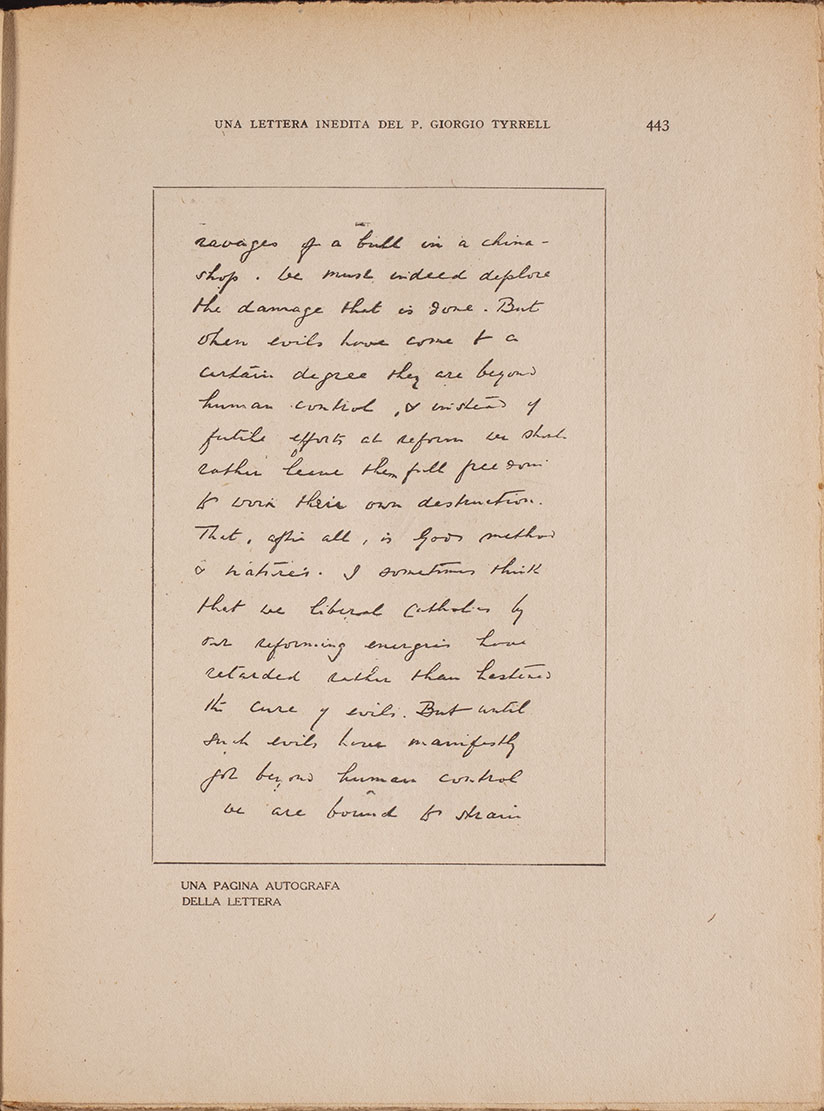 UNA LETTERA INEDITA DEL P. GIORGIO TYRRELL 443
ravages of a bull in a china-
shop. We must indeed deplore
the damage that is done. But
when evils have come to a
certain degree they are beyond
human control, & instead of
futile efforts at reform we shd.
rather leave them full freedom
to work their own destruction.
That, after all, is God's method
& nature's. I sometimes think
that we liberal Catholics by
our reforming energies have
retarded rather than hastened
the cure of evils. But until
such evils have manifestly
got beyond human control
we are bound to strain
UNA PAGINA AUTOGRAFA
DELLA LETTERA